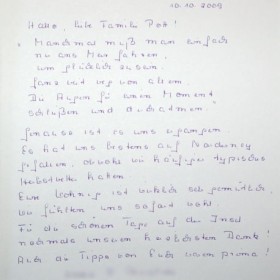 10.10.2009
Hallo, liebe Familie Pott!
"Manchmal muß man einfach
nur ans Meer fahren,
um glücklich zu sein.
Ganz weit weg von allem.
Die Augen für einen Moment
schließen und durchatmen."
Genauso ist es uns ergangen.
Es hat uns bestens auf
gefallen, obwohl wir häufiger typisches
Herbstwetter hatten.
Eure Wohnung ist wirklich gemütlich,
wir fühlten uns sofort wohl.
Für die schönen Tage auf der Insel
nochmals unseren herzlichsten Dank!
Auch die Tipps von Euch waren prima!